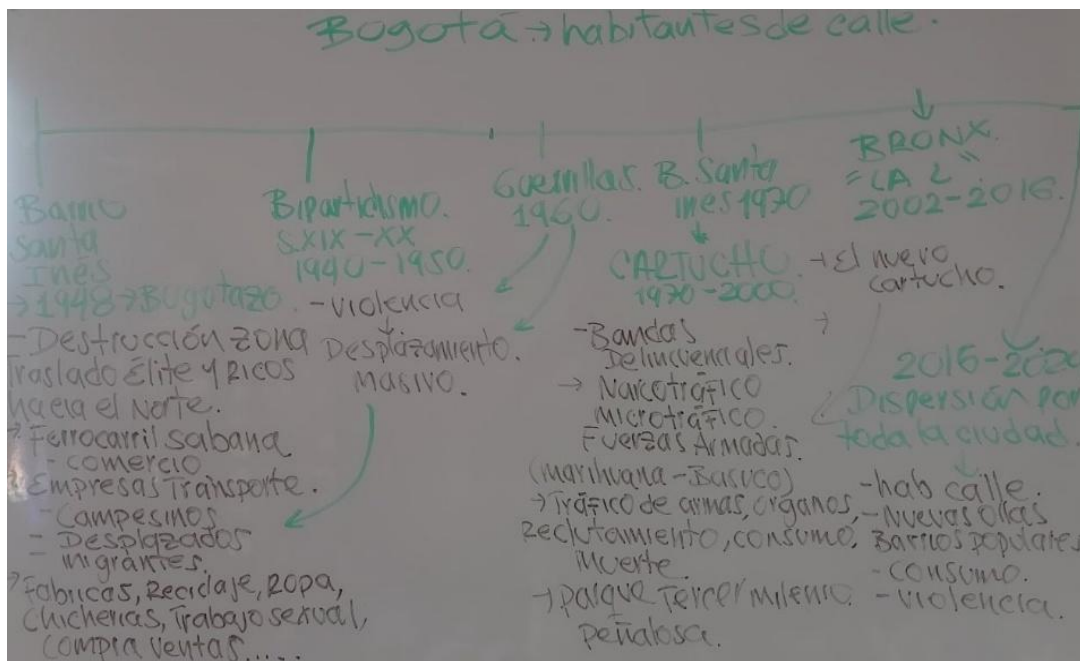 Bogotá → habitantes de calle.
Barrio
Santa
Inés
→ 1948 → Bogotazo.
- Destrucción zona
Traslado Élite y Ricos
hacia el Norte.
→ Ferrocarril sabana
- comercio
→ Empresas Transporte.
- Campesinos
- Desplazados
migrantes.
→ Fabricas, Reciclaje, Ropa,
Chicherias, Trabajo sexual,
compra ventas.....
Bipartidismo.
S.XIX-XX
1940-1950.
- violencia
Desplazamiento.
masivo.
Guerrillas.
1960.
B. Santa
ines 1970
CARTUCHO.
1970-2000.
- Bandas
Delincuenciales.
→ Narcotráfico
microtráfico
Fuerzas Armadas.
(marihuana-Basuco)
→ Tráfico de armas, órganos,
Reclutamiento, consumo,
Muerte.
→ parque Tercer milenio.
peñalosa.
BRONX.
"LA L"
2002-2016.
→ El nuevo
cartucho.
2016-2020
Dispersión por
toda la ciudad.
- hab calle.
- Nuevas ollas
Barrios populares
- consumo.
- violencia.